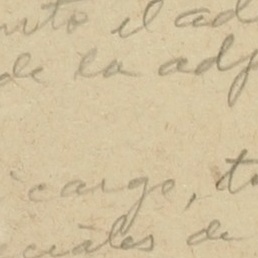 el ad
de la adj
cargo, t
ciales de